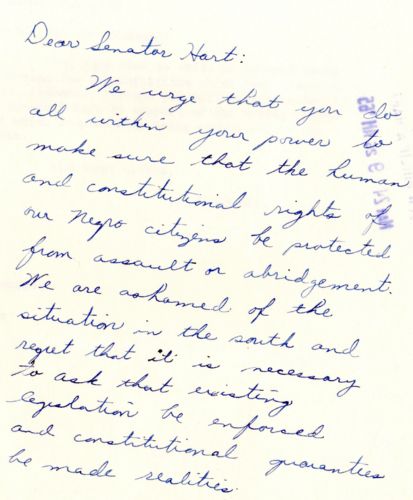 Dear Senator Hart:
We urge that you do
all within your power to
make sure that the human
and constitutional rights of
our Negro citizens be protected
from assault or abridgement.
We are ashamed of the
situation in the south and
regret that it is necessary
to ask that existing
legislation be enforced
and constitutional guarantees
be made realities.